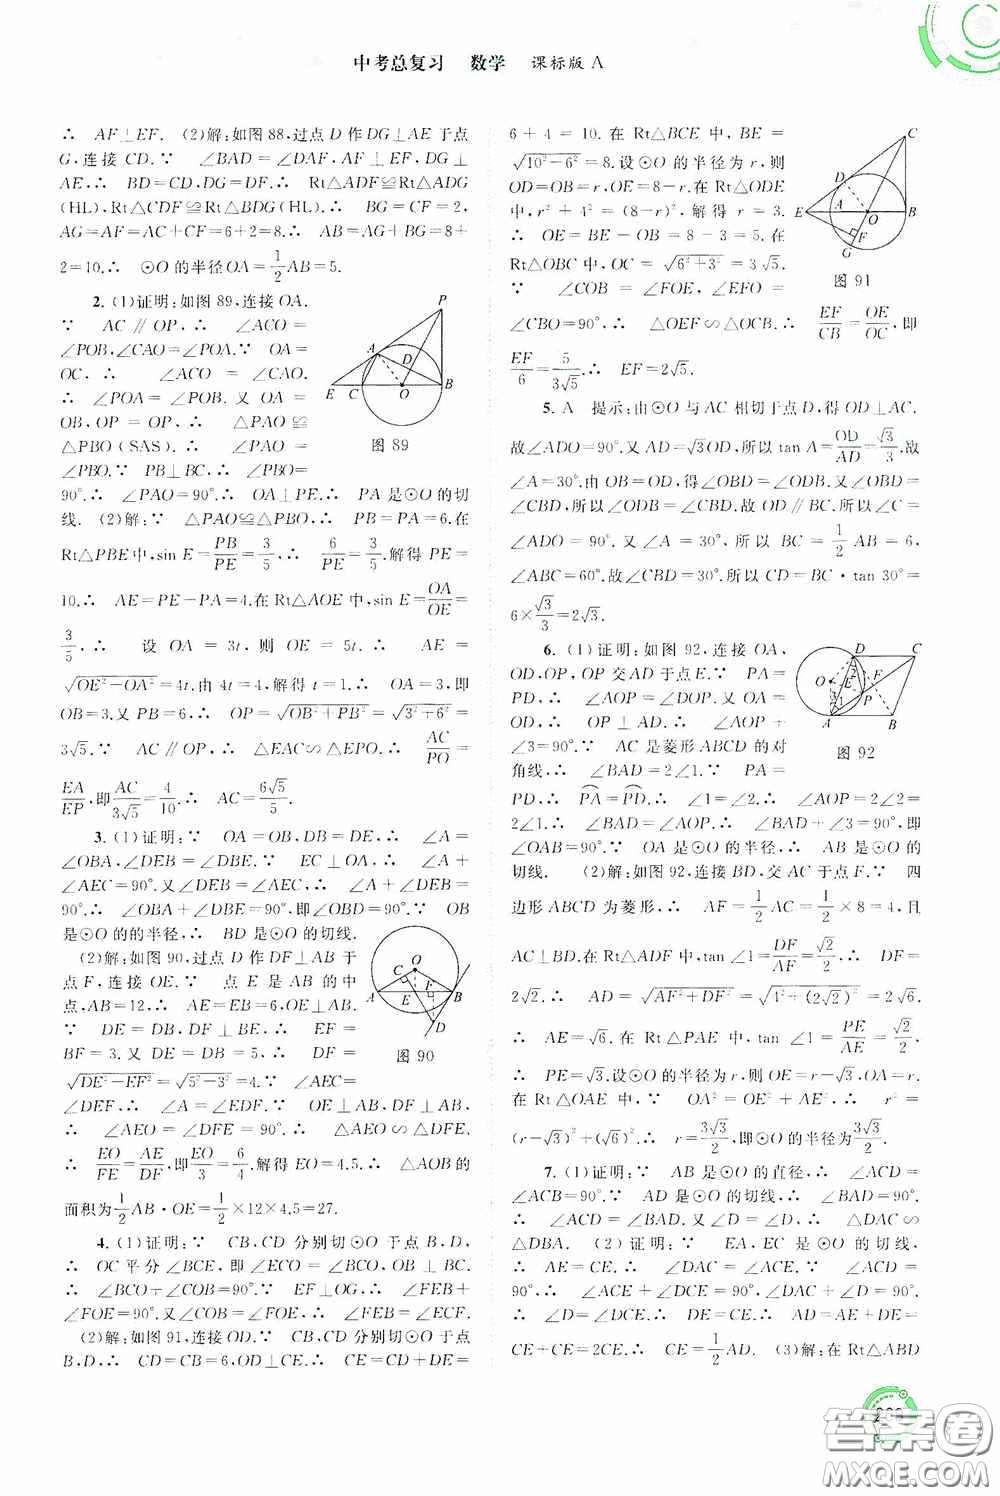 中考总复习 数学 课标版 A
∴ AF⊥EF. (2)解:如图88,过点D作DG⊥AE于点
G,连接CD.∵ ∠BAD=∠DAF,AF⊥EF,DG⊥
AE,∴ BD=CD,DG=DF.∴ Rt△ADF≌Rt△ADG
(HL),Rt△CDF≌Rt△BDG(HL).∴ BG=CF=2,
AG=AF=AC+CF=6+2=8.∴ AB=AG+BG=8+
2=10.∴ ⊙O的半径OA=1/2AB=5.
2. (1)证明:如图89,连接OA.
∵ AC∥OP,∴ ∠ACO=
∠POB,∠CAO=∠POA.∵ OA=
OC,∴ ∠ACO=∠CAO.
∴ ∠POA=∠POB.又OA=
OB,OP=OP,∴ △PAO≌
△PBO(SAS).∴ ∠PAO=
∠PBO.∵ PB⊥BO,∴ ∠PBO=
90°.∴ ∠PAO=90°.∴ OA⊥PE.∴ PA是⊙O的切
线. (2)解:∵ △PAO≌△PBO,∴ PB=PA=6.在
Rt△PBE中,sin E=PB/PE=3/5,∴ 6/PE=3/5.解得PE=
10.∴ AE=PE-PA=4.在Rt△AOE中,sin E=OA/OE=
3/5,∴ 设OA=3t,则OE=5t.∴ AE=
√(OE²-OA²)=4t.由4t=4,解得t=1.∴ OA=3,即
OB=3.又PB=6,∴ OP=√(OB²+PB²)=√(3²+6²)=
3√5.∵ AC∥OP,∴ △EAC∽△EPO.∴ AC/PO=
EA/EP,即AC/3√5=4/10.∴ AC=6√5/5.
P
A
D
E
C
O
B
图 89
3. (1)证明:∵ OA=OB,DB=DE,∴ ∠A=
∠OBA,∠DEB=∠DBE.∵ EC⊥OA,∴ ∠A+
∠AEC=90°.又∠DEB=∠AEC,∴ ∠A+∠DEB=
90°.∴ ∠OBA+∠DBE=90°,即∠OBD=90°.∵ OB
是⊙O的的半径,∴ BD是⊙O的切线.
(2)解:如图90,过点D作DF⊥AB于
点F,连接OE.∵ 点E是AB的中
点,AB=12,∴ AE=EB=6.
∵ DE=DB,DF⊥BE,∴ EF=
BF=3.又DE=DB=5,∴ DF=
√(DE²-EF²)=√(5²-3²)=4.∵ ∠AEC=
∠DEF,∴ ∠A=∠EDF.∵ OE⊥AB,DF⊥AB,
∴ ∠AEO=∠DFE=90°.∴ △AEO∽△DFE.
∴ EO/FE=AE/DF,即EO/3=6/4.解得EO=4.5.∴ △AOB的
面积为1/2AB·OE=1/2×12×4.5=27.
O
C
A
E
F
B
D
图 90
4. (1)证明:∵ CB,CD分别切⊙O于点B,D,
∴ OC平分∠BCE,即∠ECO=∠BCO,OB⊥BC.
∴ ∠BCO+∠COB=90°.∵ EF⊥OG,∴ ∠FEB+
∠FOE=90°.又∠COB=∠FOE,∴ ∠FEB=∠ECF.
(2)解:如图91,连接OD.∵ CB,CD分别切⊙O于点
B,D,∴ CD=CB=6,OD⊥CE.∴ CE=CD+DE=
6+4=10.在Rt△BCE中,BE=
√(10²-6²)=8.设⊙O的半径为r,则
OD=OB=r,OE=8-r.在Rt△ODE
中,r²+4²=(8-r)²,解得r=3.
∴ OE=BE-OB=5.在
Rt△OBC中,OC=√(6²+3²)=3√5.
∵ ∠COB=∠FOE,∠EFO=
∠CBO=90°,∴ △OEF∽△OCB.∴ EF/CB=OE/OC,即
EF/6=5/3√5.∴ EF=2√5.
C
D
E
A
O
B
F
G
图 91
5. A 提示:由⊙O与AC相切于点D,得OD⊥AC.
故∠ADO=90°.又AD=√3OD,所以tan A=OD/AD=√3/3.故
∠A=30°.由OB=OD,得∠OBD=∠ODB.又∠OBD=
∠CBD,所以∠ODB=∠CBD.故OD∥BC.所以∠C=
∠ADO=90°.又∠A=30°,所以BC=1/2AB=6,
∠ABC=60°.故∠CBD=30°.所以CD=BC·tan 30°=
6×√3/3=2√3.
6. (1)证明:如图92,连接OA,
OD,OP,OP交AD于点E.∵ PA=
PD,∴ ∠AOP=∠DOP.又OA=
OD,∴ OP⊥AD.∴ ∠AOP+
∠3=90°.∵ AC是菱形ABCD的对
角线,∴ ∠BAD=2∠1.∵ PA=
PD,∴ PA=PD.∴ ∠1=∠2.∴ ∠AOP=2∠2=
2∠1.∴ ∠BAD=∠AOP.∴ ∠BAD+∠3=90°,即
∠OAB=90°.∵ OA是⊙O的半径,∴ AB是⊙O的
切线. (2)解:如图92,连接BD,交AC于点F.∵ 四
边形ABCD为菱形,∴ AF=1/2AC=1/2×8=4,且
AC⊥BD.在Rt△ADF中,tan∠1=DF/AF=√2/2,∴ DF=
2√2.∴ AD=√(AF²+DF²)=√(4²+(2√2)²)=2√6.
∴ AE=√6.在Rt△PAE中,tan∠1=PE/AE=√2/2,
∴ PE=√3.设⊙O的半径为r,则OE=r-√3,OA=r.
在Rt△OAE中,∵ OA²=OE²+AE²,∴ r²=
(r-√3)²+(√6)².∴ r=3√3/2.∴ ⊙O的半径为3√3/2.
D
C
O
E
2
F
P
3
1
A
B
图 92
7. (1)证明:∵ AB是⊙O的直径,∴ ∠ACD=
∠ACB=90°.∵ AD是⊙O的切线,∴ ∠BAD=90°.
∴ ∠ACD=∠DAB.又∠D=∠D,∴ △DAC∽
△DBA. (2)证明:∵ EA,EC是⊙O的切线,
∴ AE=CE.∴ ∠DAC=∠ACE.∵ ∠ACD=
90°,∴ ∠ACE+∠DCE=90°,∠DAC+∠D=90°.
∴ ∠D=∠DCE.∴ DE=CE.∴ AD=AE+DE=
CE+CE=2CE.∴ CE=1/2AD. (3)解:在Rt△ABD
答案卷
MXQE.COM